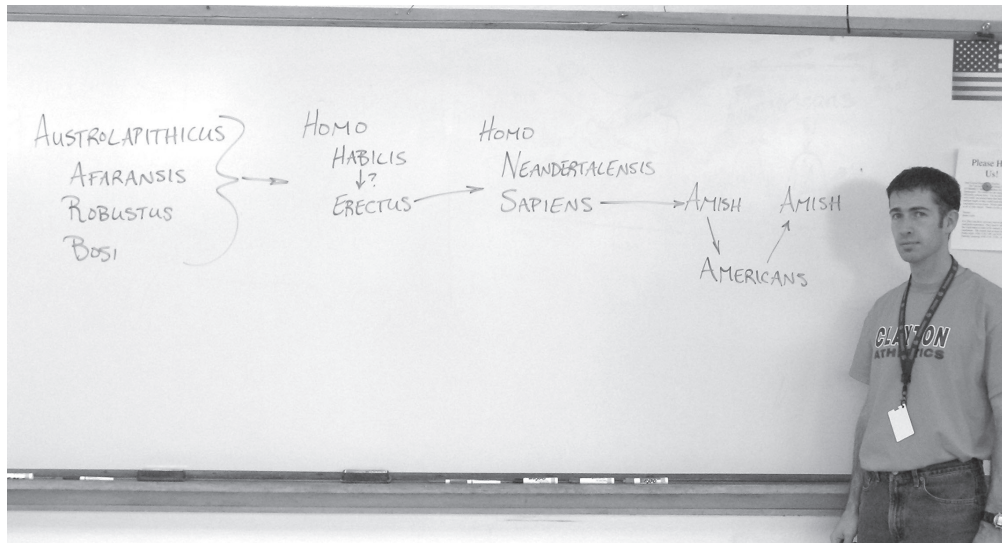 AUSTROLAPITHICUS
AFARANSIS
ROBUSTUS
BOSI
HOMO
HABILIS
?
ERECTUS
HOMO
NEANDERTALENSIS
SAPIENS
AMISH
AMERICANS
AMISH
Please H
Us!
CLAYTON
ATHLETICS